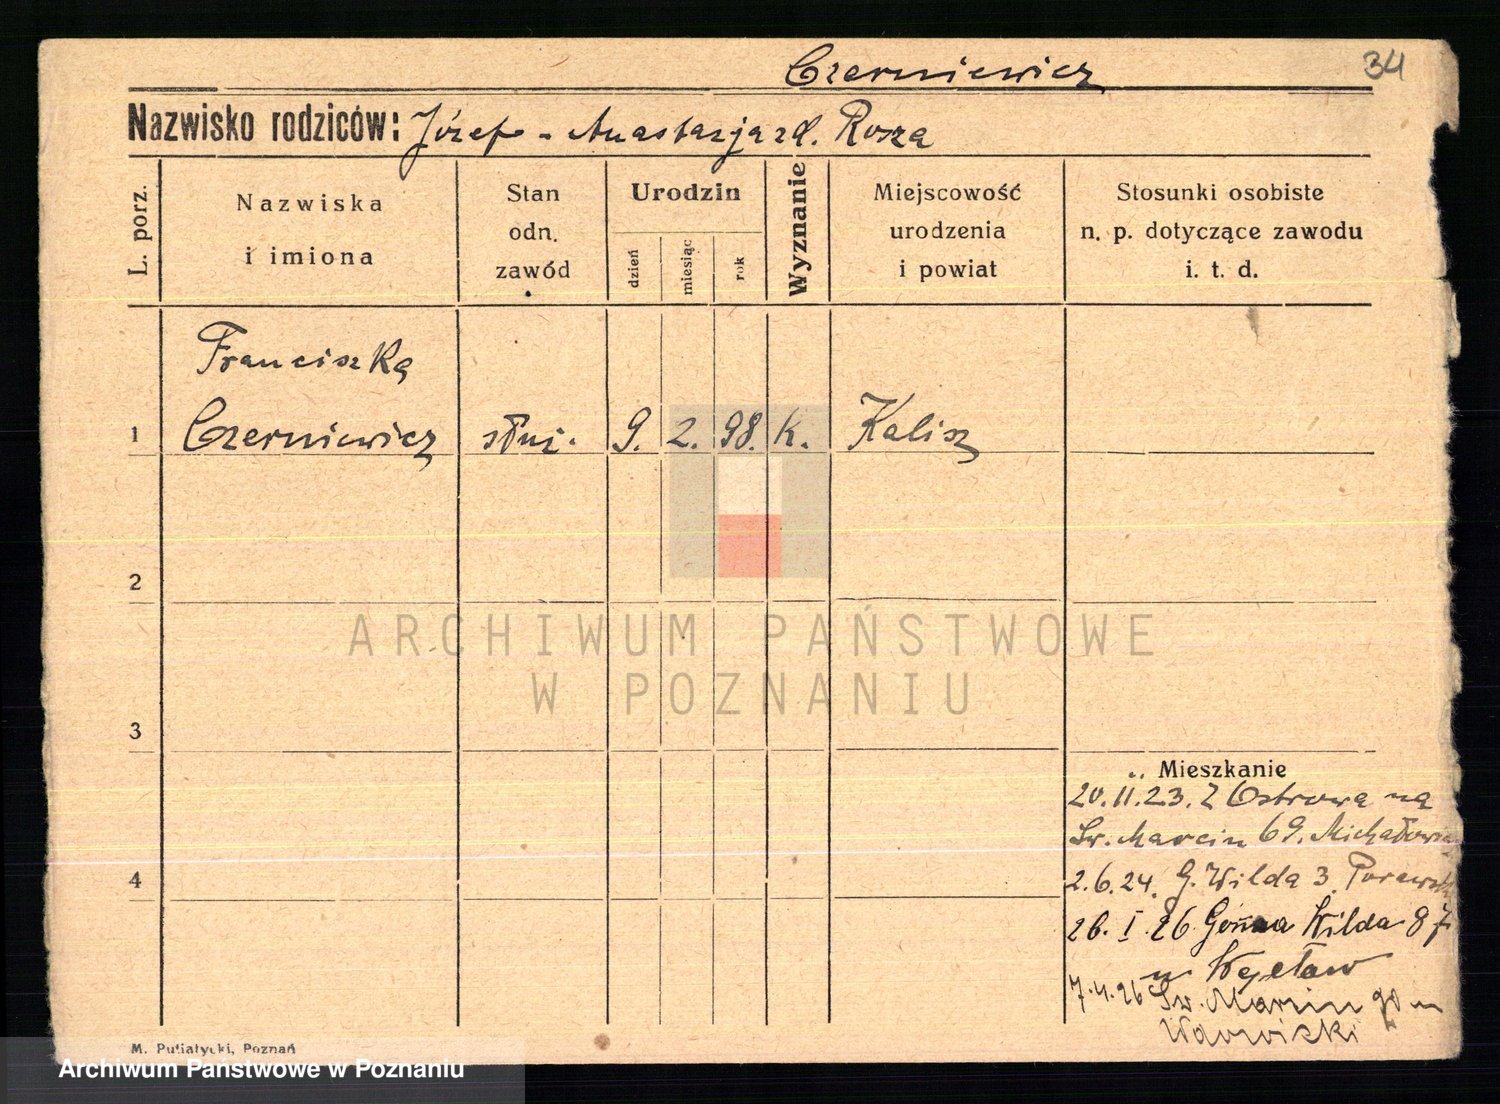 Czerniewicz 34
Nazwisko rodziców: Józef - Anastazja zd. Rosza
L. porz.
Nazwiska
i imiona
Stan
odn.
zawód
Urodzin
dzień
miesiąc
rok
Wyznanie
Miejscowość
urodzenia
i powiat
Stosunki osobiste
n. p. dotyczące zawodu
i. t. d.
Franciszka
1 Czerniewicz służ. 9. 2. 98. k. Kalisz
2
3
4
ARCHIWUM PAŃSTWOWE
W POZNANIU
Mieszkanie
20.II.23. Z Ostrowa na
Św. Marcin 69.
2.6.24. G. Wilda 3.
26. I. 26 Górna Wilda 87
u
7.4.26 Św. Marcin
M. Putiatycki, Poznań
Archiwum Państwowe w Poznaniu